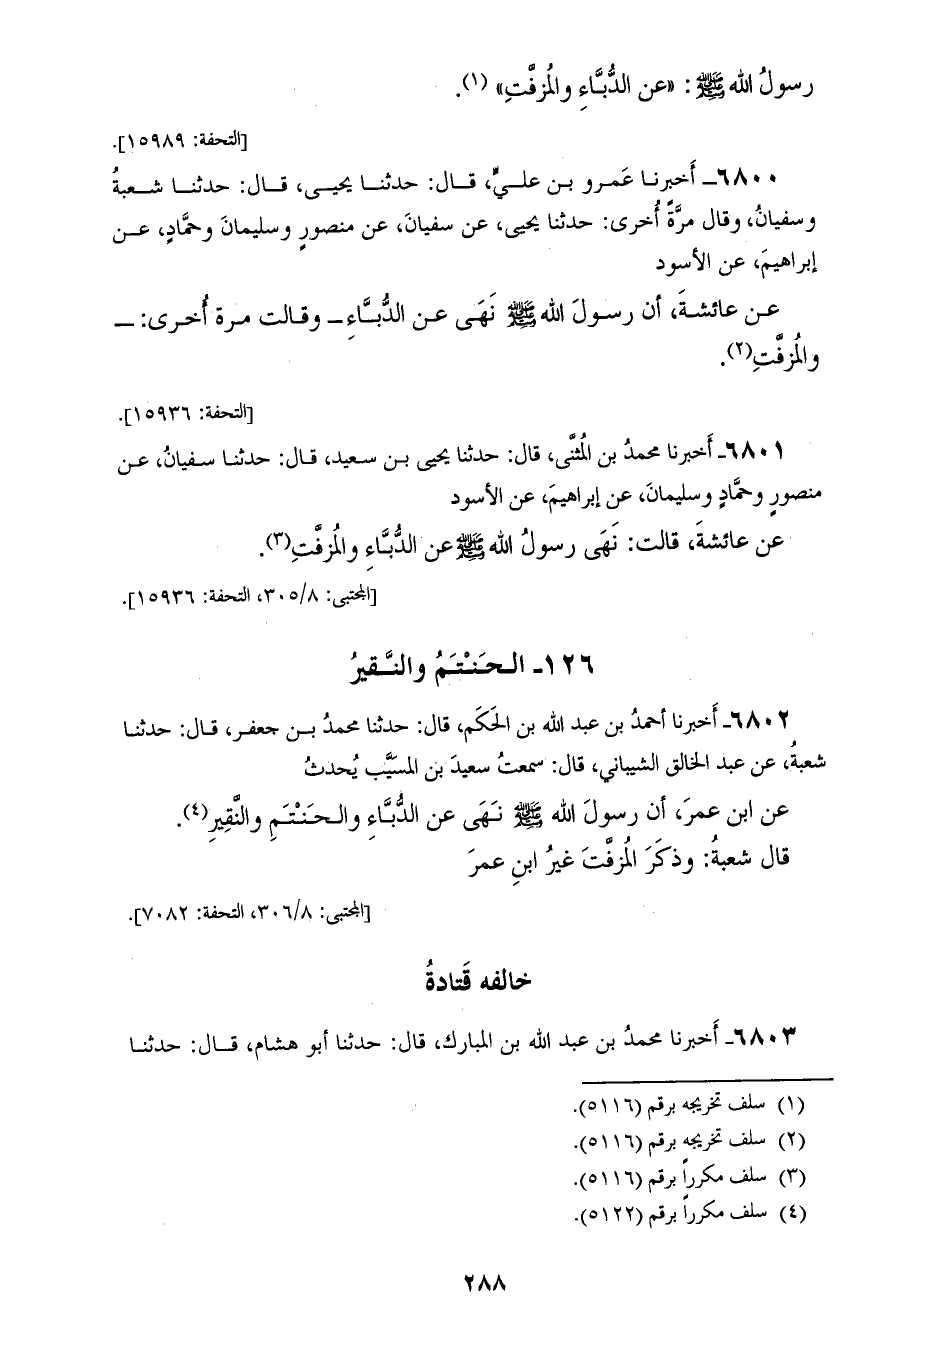 رسولُ الله ﷺ: «عن الدُّبَّاءِ والمُزفَّتِ» (١).
[التحفة: ١٥٩٨٩].
٦٨٠٠ـ أَخبرنا عَمرو بن عليٍّ، قال: حدثنا يحيى، قال: حدثنا شعبةُ
وسفيانُ، وقال مرَّةً أُخرى: حدثنا يحيى، عن سفيانَ، عن منصورٍ وسليمانَ وحمَّادٍ، عن
إبراهيمَ، عن الأسود
عن عائشةَ، أن رسولَ الله ﷺ نَهَى عن الدُّبَّاءِ ـ وقالت مرة أُخرى: ـ
والمُزفَّتِ(٢).
[التحفة: ١٥٩٣٦].
٦٨٠١ـ أَخبرنا محمدُ بن المُثنَّى، قال: حدثنا يحيى بن سعيد، قال: حدثنا سفيانُ، عن
منصورٍ وحمَّادٍ وسليمانَ، عن إبراهيمَ، عن الأسود
عن عائشةَ، قالت: نَهَى رسولُ الله ﷺ عن الدُّبَّاءِ والمُزفَّتِ(٣).
[المجتبى: ٣٠٥/٨، التحفة: ١٥٩٣٦].
١٢٦ـ الحَنْتَمُ والنَّقيرُ
٦٨٠٢ـ أَخبرنا أحمدُ بن عبد الله بن الحَكَم، قال: حدثنا محمدُ بن جعفر، قال: حدثنا
شعبةُ، عن عبد الخالق الشيباني، قال: سمعتُ سعيدَ بن المسيَّب يُحدثُ
عن ابن عمرَ، أن رسولَ الله ﷺ نَهَى عن الدُّبَّاءِ والحَنْتَمِ والنَّقِيرِ(٤).
قال شعبةُ: وذكَرَ المُزفَّتَ غيرُ ابنِ عمرَ
[المجتبى: ٣٠٦/٨، التحفة: ٧٠٨٢].
خالفه قَتادةُ
٦٨٠٣ـ أَخبرنا محمدُ بن عبد الله بن المبارك، قال: حدثنا أبو هشام، قال: حدثنا
(١) سلف تخريجه برقم (٥١١٦).
(٢) سلف تخريجه برقم (٥١١٦).
(٣) سلف مكرراً برقم (٥١١٦).
(٤) سلف مكرراً برقم (٥١٢٢).
٢٨٨